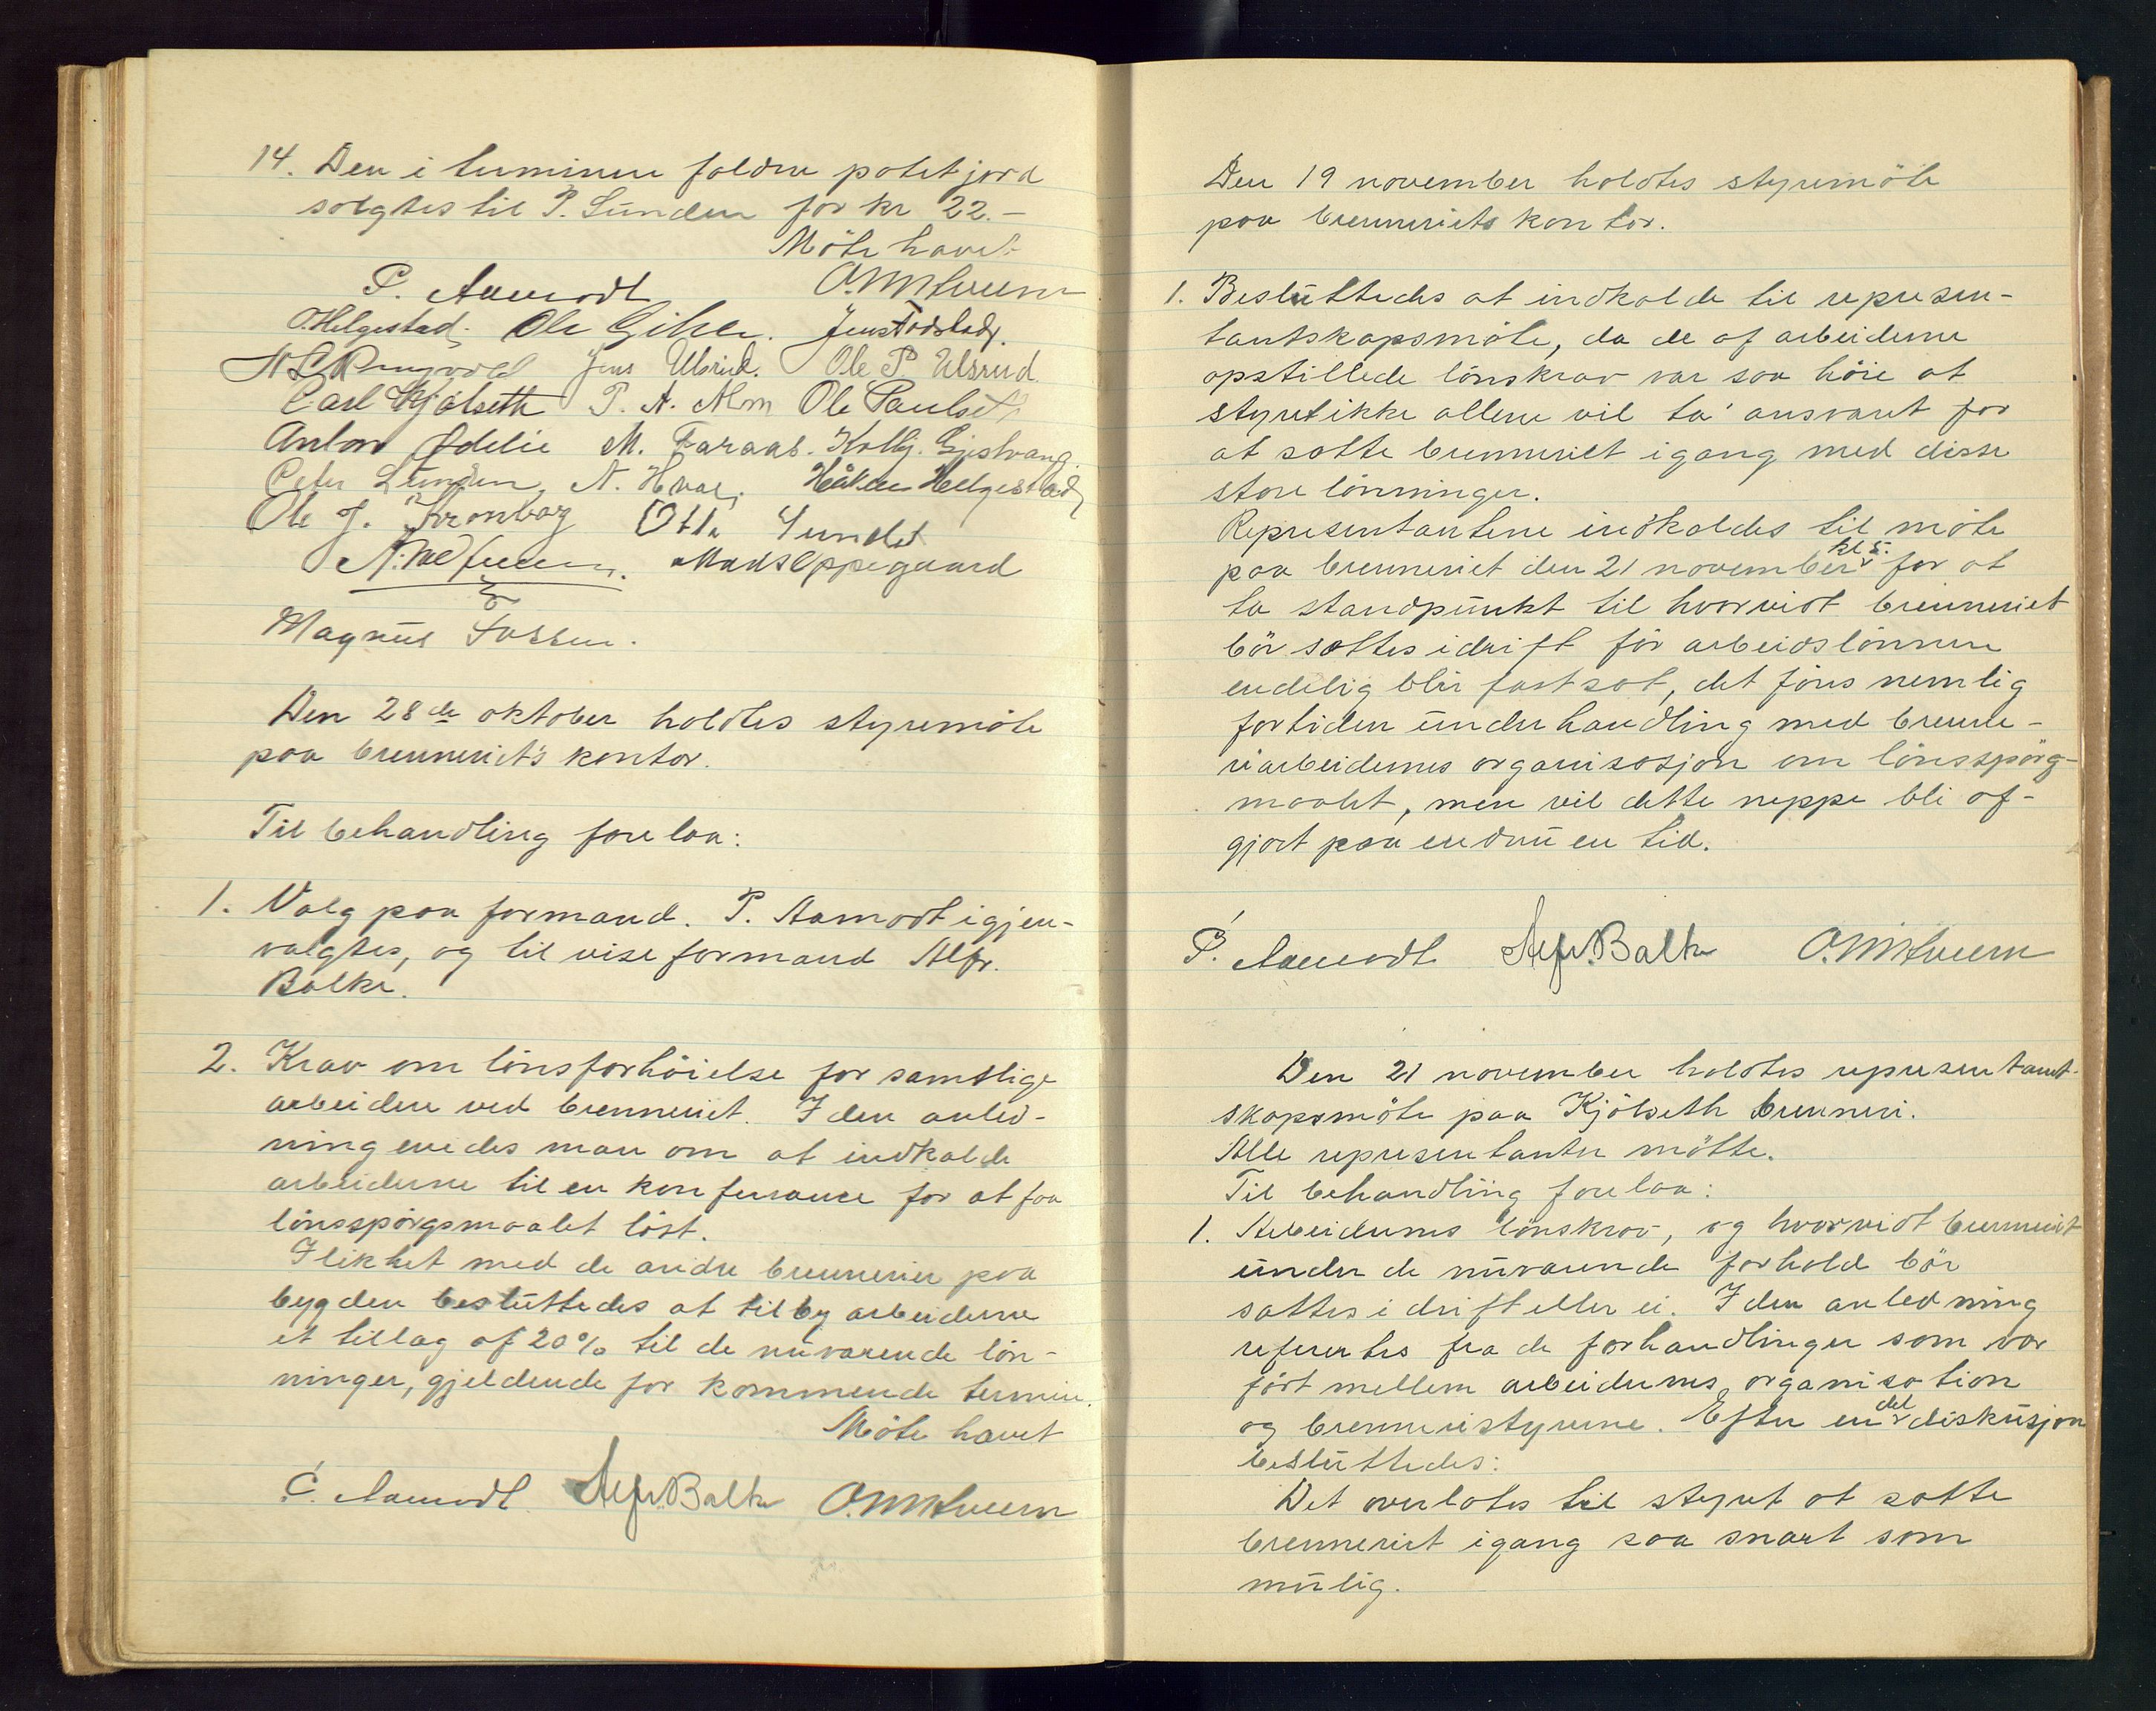 14. Den i terminen faldne potetjord
solgtes til P. Lunden for kr 22.-
Møte hævet
P. Aamodt O.M. Hveem
O. Helgestad. Ole Gihle. Jens Fodstad.
N L Ringvold Jens Ulsrud. Ole P. Ulsrud.
Carl Kjølseth P. A. Alm Ole Paulseth
Anton Ødelie M. Faraas. Kolbj. Gjestvang.
Peter Lunden, N. Hval, Håken Helgestad
Ole J. Kronborg Otto Sundet
Mads Eppegaard
Magnus Fossen.
Den 28de oktober holdtes styremøte
paa brenneriets kontor.
Til behandling forelaa:
1. Valg paa formand. P. Aamodt igjen-
valgtes, og til viseformand Alfr.
Balke.
2. Krav om lønsforhøielse for samtlige
arbeidere ved brenneriet. I den anled-
ning enedes man om at indkalde
arbeiderne til en konferance for at faa
lønsspørgsmaalet løst.
I likhet med de andre brennerier paa
bygden besluttedes at tilby arbeiderne
et tillæg af 20% til de nuværende løn-
ninger, gjeldende for kommende termin.
Møte hævet
P. Aamodt Alfr. Balke O.M. Hveem
Den 19 november holdtes styremøte
paa brenneriets kontor.
1. Besluttedes at indkalde til represen-
tantskapsmøte, da de af arbeiderne
opstillede lønskrav var saa høie at
styret ikke allene vil ta' ansvaret for
at sætte brenneriet igang med disse
store lønninger.
Representantene indkaldes til møte
paa brenneriet den 21 november kl 5. for at
ta standpunkt til hvorvidt brenneriet
bør sættes i drift før arbeidslønnen
endelig blir fastsat, det føres nemlig
fortiden underhandling med brenne-
riarbeidernes organisasjon om lønsspørg-
maalet, men vil dette neppe bli af-
gjort paa endnu en tid.
P. Aamodt Alfr. Balke O.M. Hveem
Den 21 november holdtes representant-
skapsmøte paa Kjølseth brenneri.
Alle representanter møtte.
Til behandling forelaa:
1. Arbeidernes lønskrav, og hvorvidt brenneriet
under de nuværende forhold bør
sættes i drift eller ei. I den anledning
refertes fra de forhandlinger som var
ført mellem arbeidernes organisation
og brenneristyrerne. Efter en del diskusjon
besluttedes:
Det overlates til styret at sætte
brenneriet igang saa snart som
mulig.